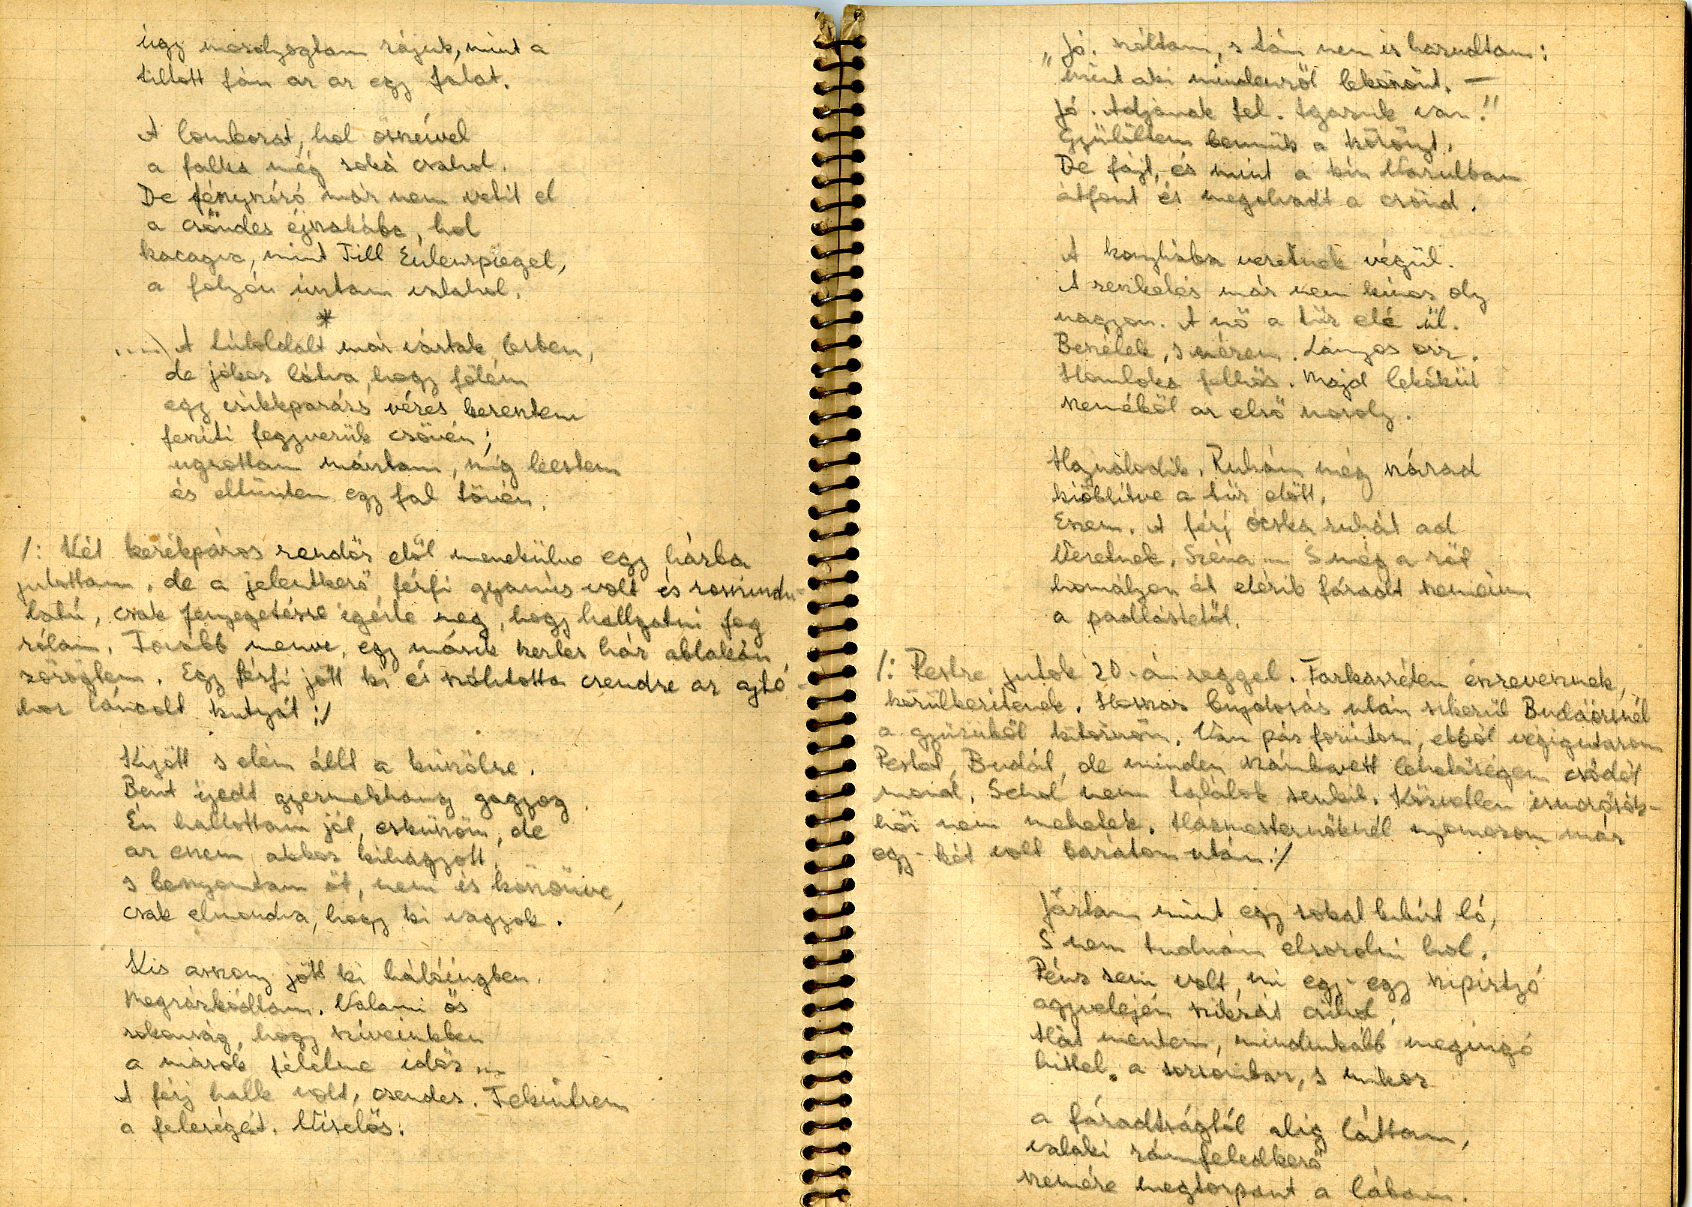 úgy mosolyogtam rájuk, mint a
tiltott fán az az egy falat.
A lombozat, hol ösznével
a falka még soká csahol.
De fényszóró már nem vetít el
a csöndes éjszakába, hol
kacagva, mint Till Eulenspiegel,
a folyón úsztam valahol.
*
....) A túloldalt már vártak lesben,
de jókor látva, hogy fölém
egy csikkparázs véres keresztem
feszíti fegyverük csövén;
ugrottam másztam, míg leestem
és eltűntem egy fal tövén.
/: Két kerékpáros rendőr elől menekülve egy házba
jutottam, de a jelentkező férfi gyanús volt és rosszindu-
latú, csak fenyegetésre ígérte meg, hogy hallgatni fog
rólam. Tovább menve, egy másik kertes ház ablakán
zörögtem. Egy férfi jött ki és szólította csendre az ajtó-
hoz láncolt kutyát :/
Kijött s elém állt a küszöbre.
Bent ijedt gyermekhang gagyog.
Én hallottam jól, esküszöm, de
az eszem akkor kihagyott,
s benyomtam őt, nem is köszönve,
csak elmondva, hogy ki vagyok.
Kis asszony jött ki hálóingben.
Megrázkódtam. Valami ős
rokonság, hogy szíveinkben
a mások félelme idős ...
A férj halk volt, csendes. Tekintsem
a feleségét. Viselős.
„Jó. szóltam, s tán nem is hazudtam:
mint aki mindenről leköszönt. —
Jó. Adjanak fel. Igazuk van."
Gyűlöltem bennük a közönyt.
De fájt, és mint a kín Vazulban
átfont és megolvadt a csönd.
A konyhába vezetnek végül.
A reszketés már nem kínoz oly
nagyon. A nő a tűz elé ül.
Beszélek, s nézem. Lányos orr.
Homloka felhős. Majd lekékül
szeméből az első mosoly.
Hajnalodik. Ruhám még szárad
kiöblítve a tűz előtt.
Eszem. A férj ócska ruhát ad
Vezetnek. Széna ... S még a rőt
homályon át elérik fáradt szemeim
a padlástetőt.
/: Pestre jutok 20-án reggel. Farkasréten észrevesznek,
körülkerítenek. Hosszas bujdosás után sikerül Budaörsnél
a gyűrűből kitörnöm. Van pár forintom, ebből végigutazom
Pestet, Budát, de minden számbavett lehetőségem csődöt
mond. Sehol nem találok senkit. Közvetlen ismerősök-
höz nem mehetek. Házmesternőknél nyomozom már
egy-két volt barátom után :/
Jártam mint egy sokat kibírt ló,
S nem tudnám elsorolni hol.
Pénz sem volt, mi egy-egy szipirtyó
agyvelején szikrát csihol.
Hát mentem, mindinkább megingó
hittel a sorsomban, s mikor
a fáradtságtól alig láttam,
valaki rámfeledkező
szemére megtorpant a lábam.